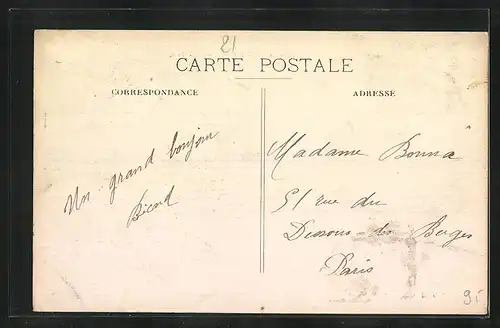 21
CARTE POSTALE
CORRESPONDANCE
ADRESSE
Un grand bonjour
Madame
51 rue du
Dessous des Berges
Paris